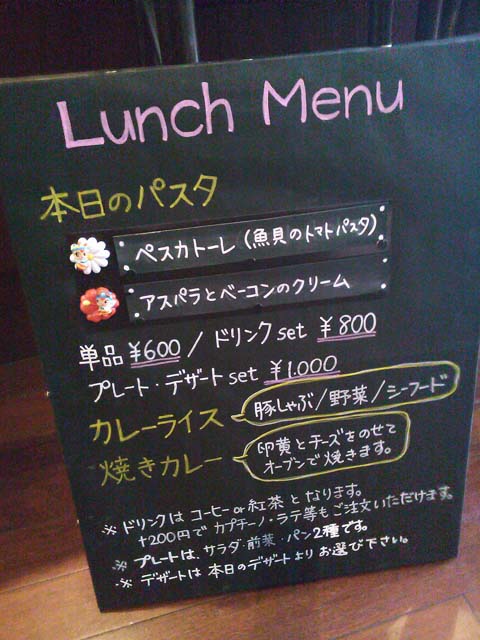 Lunch Menu
本日のパスタ
ペスカトーレ（魚貝のトマトパスタ）
アスパラとベーコンのクリーム
単品 ¥600 / ドリンク set ¥800
プレート・デザート set ¥1.000
カレーライス 豚しゃぶ/野菜/シーフード
焼きカレー 卵黄とチーズをのせて
オーブンで焼きます。
※ ドリンクは コーヒー or 紅茶 と なります。
+200円で カプチーノ・ラテ等も ご注文いただけます。
※ プレートは、サラダ・前菜・パン2種です。
※ デザートは 本日のデザートより お選び下さい。